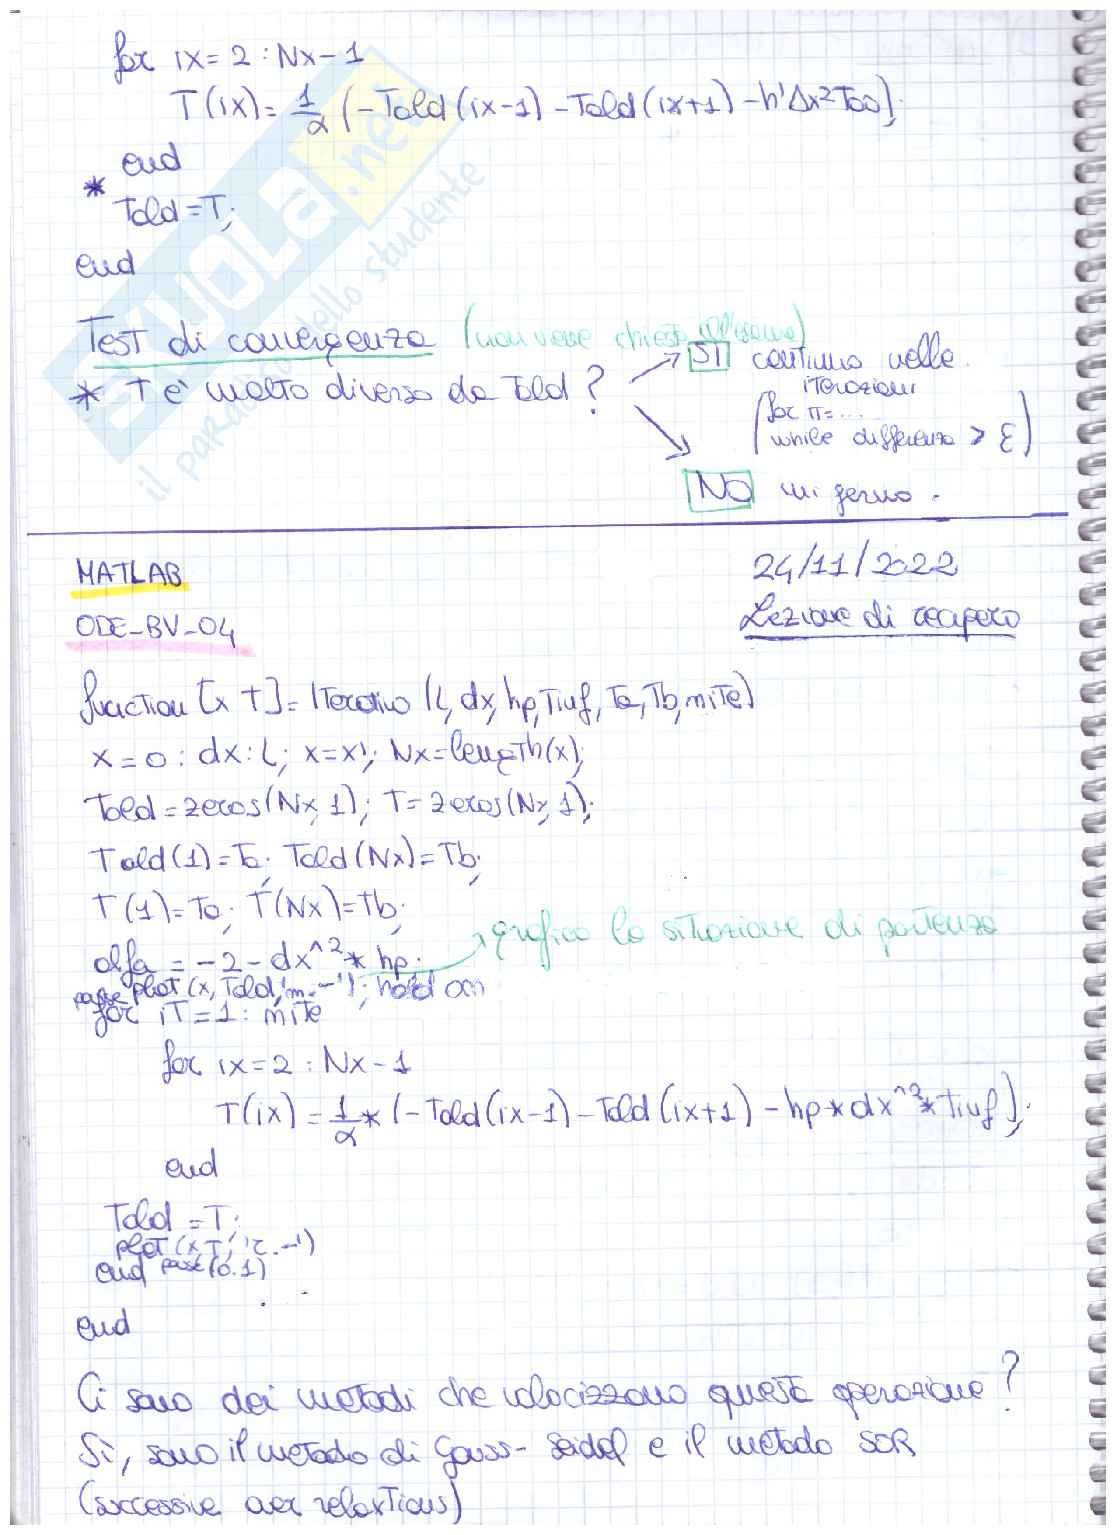 for ix = 2 : Nx-1
T(ix) = 1/α (-Told(ix-1) - Told(ix+1) - h'Δx²T∞);
end
*
Told = T;
end
Test di convergenza (non viene chiesto all'esame)
* T è molto diverso da Told ?
SI continuo nelle iterazioni
(for it=...
while differenza > ε)
NO mi fermo.
MATLAB
24/11/2022
ODE_BV_04
Lezione di recupero
function [x T] = Iterativo (L, dx, hp, Tinf, Ta, Tb, nite)
x = 0 : dx : L; x = x'; Nx = length(x);
Told = zeros(Nx,1); T = zeros(Nx,1);
Told(1) = Ta; Told(Nx) = Tb;
T(1) = Ta; T(Nx) = Tb;
grafico la situazione di partenza
alfa = -2 - dx^2 * hp;
pause plot(x, Told, 'm.-'); hold on
for iT = 1 : nite
for ix = 2 : Nx - 1
T(ix) = 1/α * (-Told(ix-1) - Told(ix+1) - hp * dx^2 * Tinf);
end
Told = T;
plot(x, T, 'r.-')
end pause(0.1)
end
Ci sono dei metodi che velocizzano questa operazione ?
Sì, sono il metodo di Gauss-Seidel e il metodo SOR
(successive over relaxtions)
SKUOLA.net
il paradiso dello studente